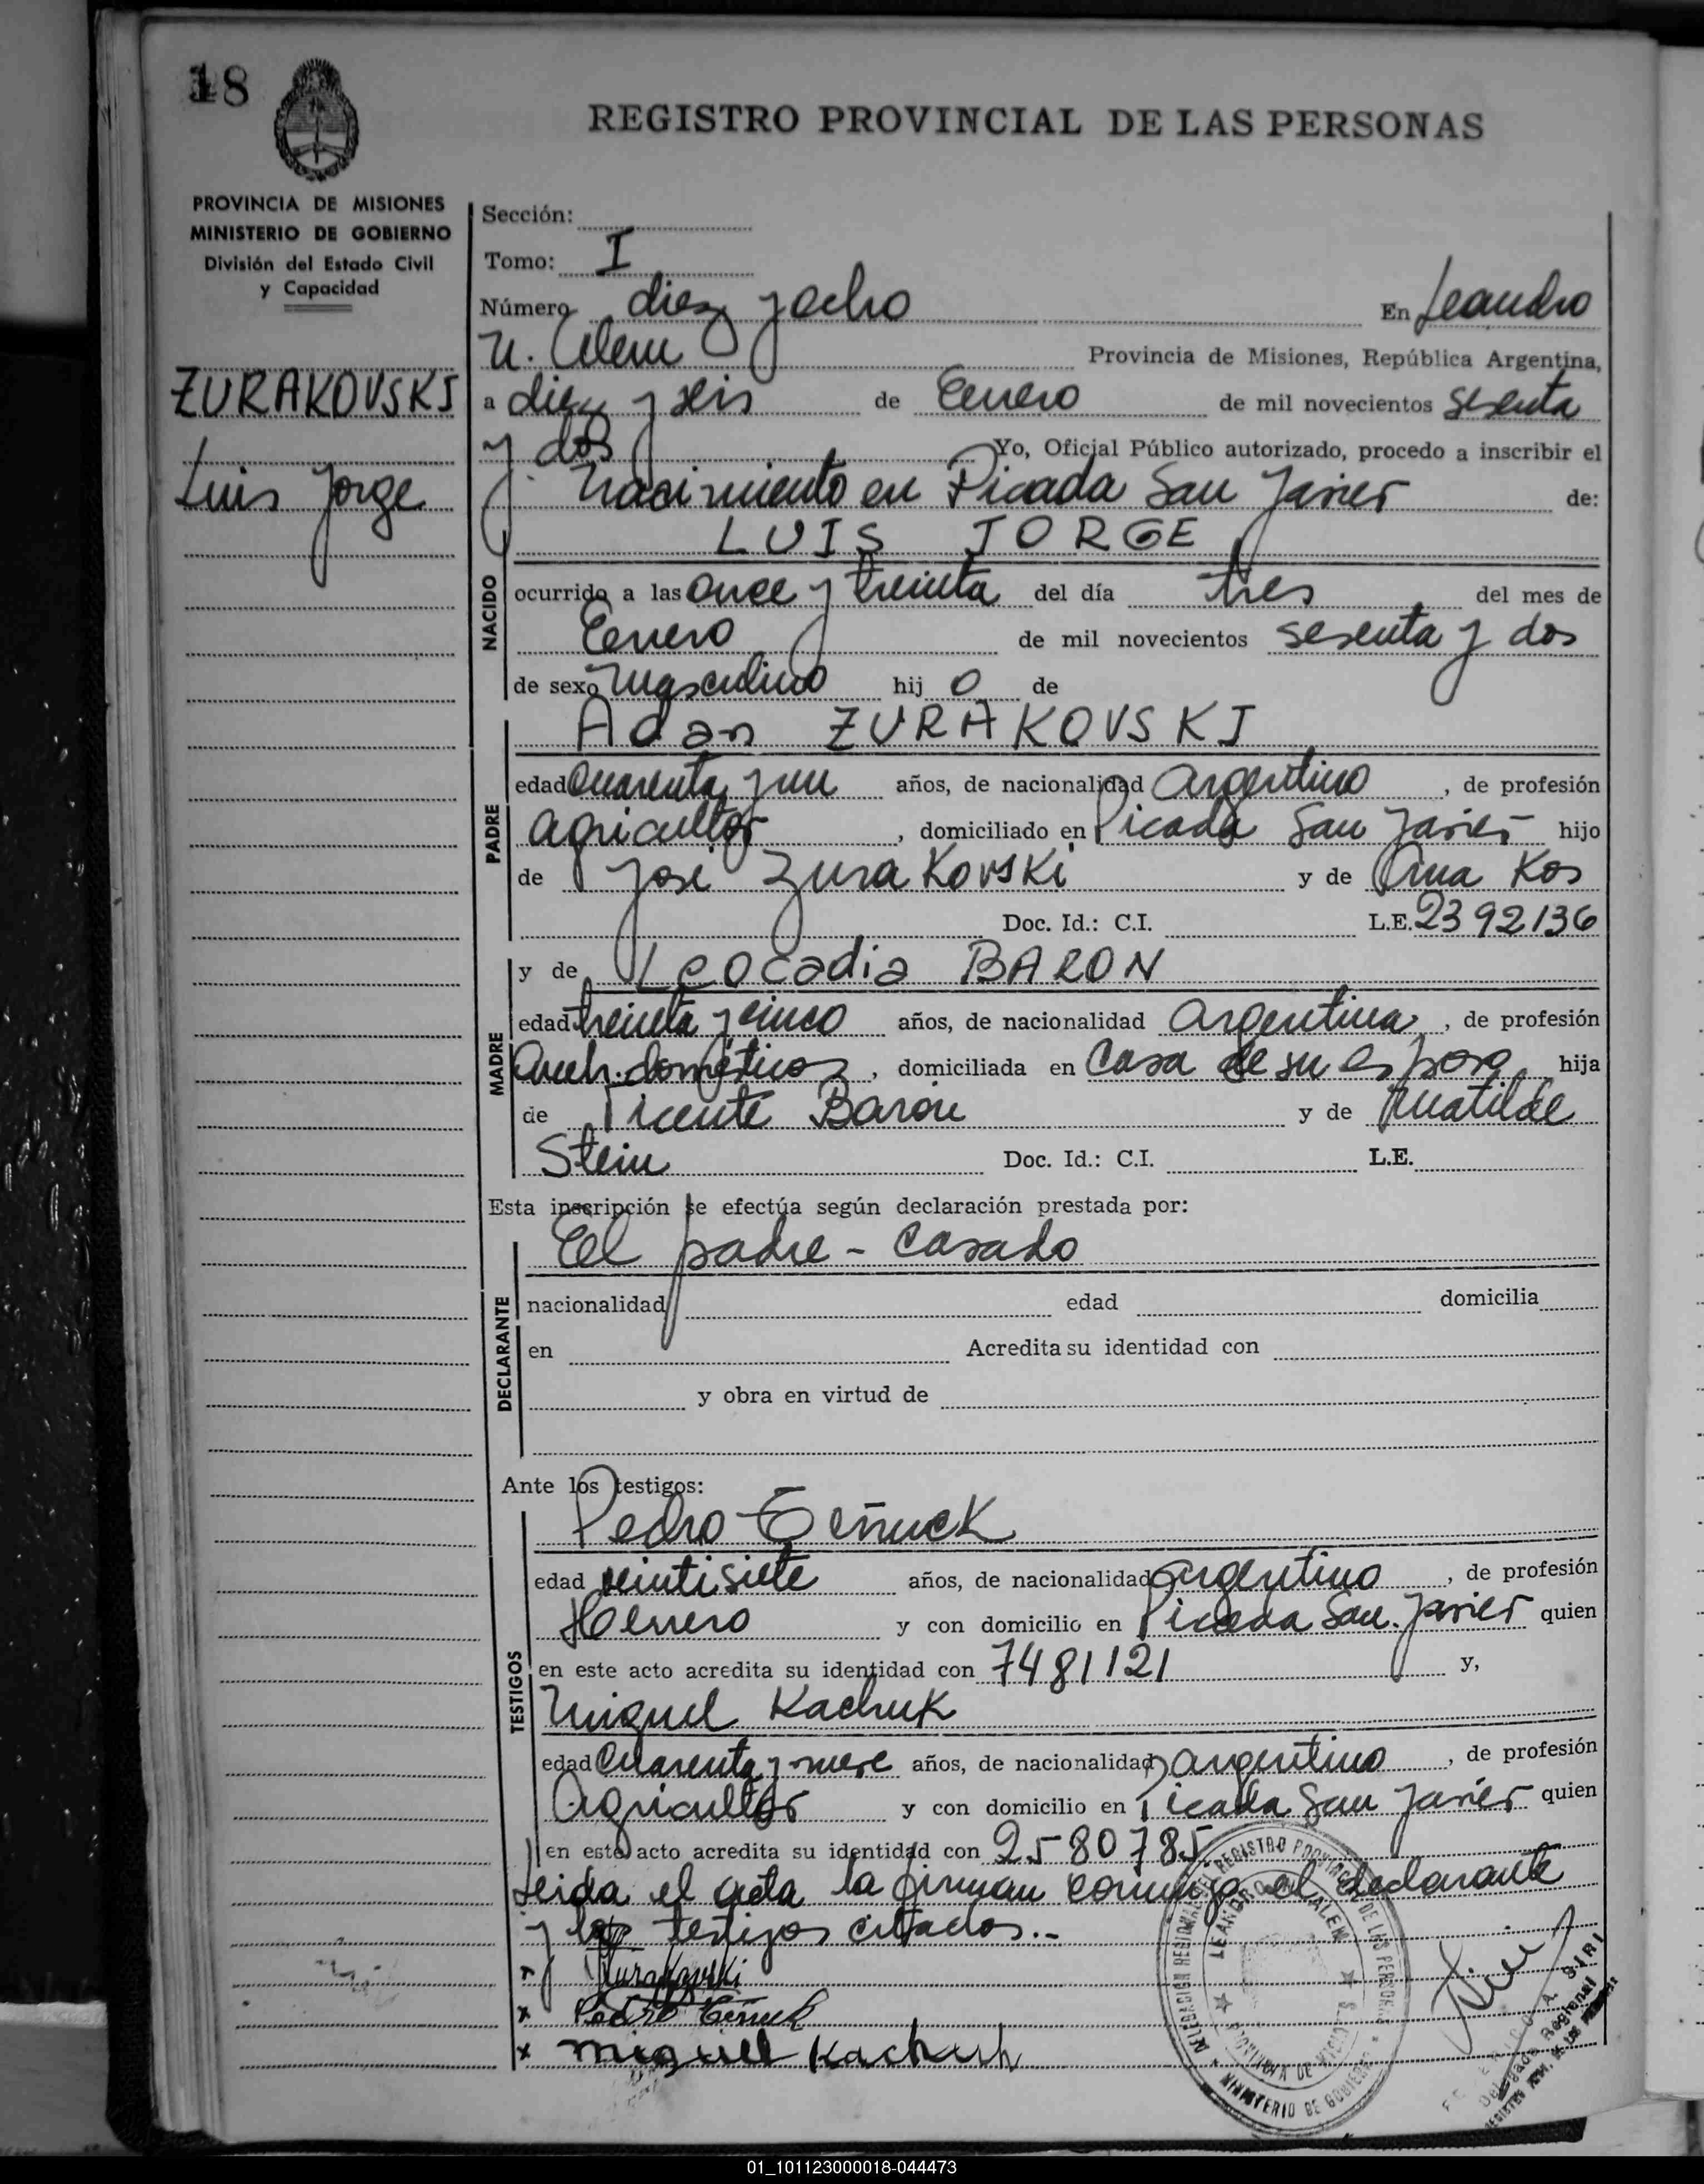 18
REGISTRO PROVINCIAL DE LAS PERSONAS
PROVINCIA DE MISIONES
MINISTERIO DE GOBIERNO
División del Estado Civil
y Capacidad
ZURAKOVSKI
Luis Jorge
Sección:
Tomo: I
Número diez y ocho En Leandro
N. Alem Provincia de Misiones, República Argentina,
a diez y seis de Enero de mil novecientos sesenta
y dos Yo, Oficial Público autorizado, procedo a inscribir el
Nacimiento en Picada San Javier de:
LUIS JORGE
NACIDO
ocurrido a las once y treinta del día tres del mes de
Enero de mil novecientos sesenta y dos
de sexo Masculino hij o de
Adan ZURAKOVSKI
PADRE
edad Cuarenta y un años, de nacionalidad Argentino, de profesión
agricultor, domiciliado en Picada San Javier hijo
de José Zurakovski y de Ana Kos
Doc. Id.: C.I. L.E. 2392136
y de Leocadia BARON
MADRE
edad treinta y cinco años, de nacionalidad Argentina, de profesión
Queh. domésticos, domiciliada en Casa de su esposo hija
de Vicente Baron y de Matilde
Stein Doc. Id.: C.I. L.E.
Esta inscripción se efectúa según declaración prestada por:
El padre - Casado
DECLARANTE
nacionalidad edad domicilia
en Acredita su identidad con
y obra en virtud de
Ante los testigos:
Pedro
TESTIGOS
edad veintisiete años, de nacionalidad Argentino, de profesión
Herrero y con domicilio en Picada San Javier quien
en este acto acredita su identidad con 7481121 y,
Miguel Kachuk
edad Cuarenta y nueve años, de nacionalidad argentino, de profesión
Agricultor y con domicilio en Picada San Javier quien
en este acto acredita su identidad con 2580785
Leida el acta la firman conmigo el declarante
y los testigos citados.-
x Zurakovski
x Pedro
x Miguel Kachuk
DELEGACIÓN REGIONAL REGISTRO PROVINCIAL DE LAS PERSONAS
LEANDRO N. ALEM
PROVINCIA DE MISIONES
MINISTERIO DE GOBIERNO
A. SIRI
Delegado Regional
01_101123000018-044473